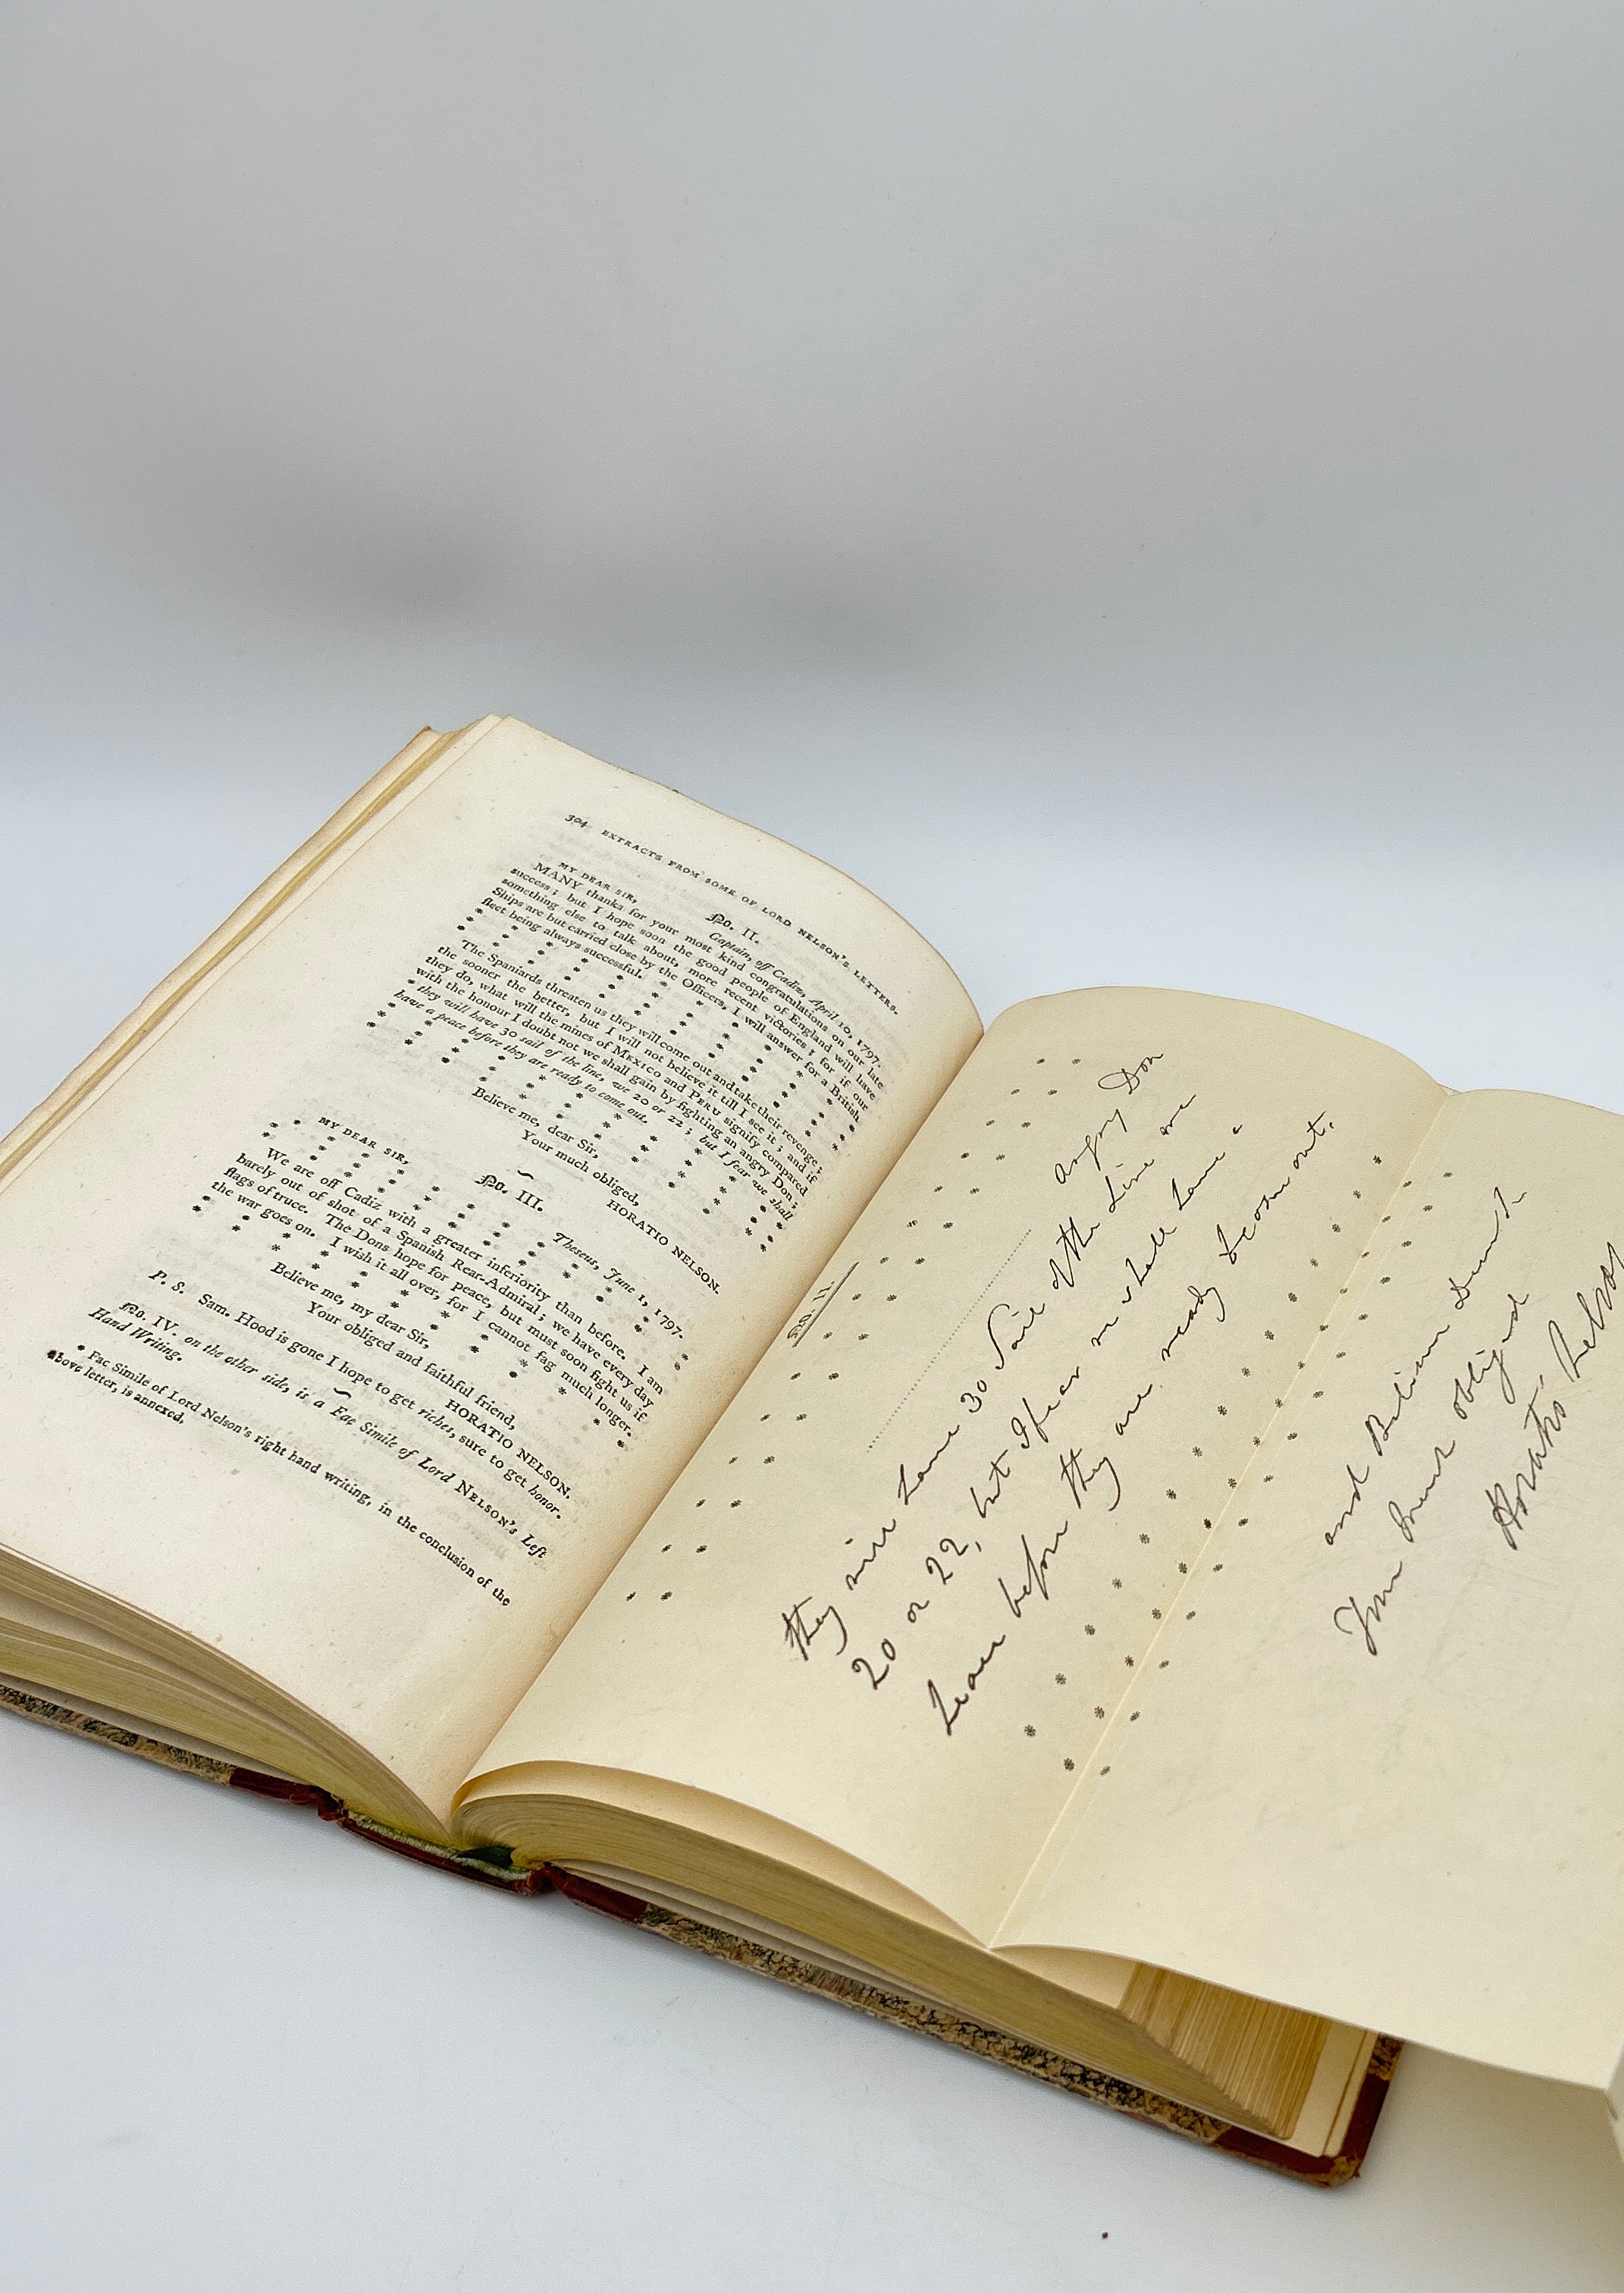 304 EXTRACTS FROM SOME OF LORD NELSON'S LETTERS.
No. II.
MY DEAR SIR,
Captain, off Cadiz, April 10, 1797.
MANY thanks for your most kind congratulations on our late
success; but I hope soon the good people of England will have
something else to talk about, more recent victories; for if our
Ships are but carried close by the Officers, I will answer for a British
fleet being always successful.
The Spaniards threaten us they will come out and take their revenge;
the sooner the better, but I will not believe it till I see it; and if
they do, what will the mines of MEXICO and PERU signify compared
with the honour I doubt not we shall gain by fighting an angry Don;
* they will have 30 sail of the line, we 20 or 22; but I fear we shall
have a peace before they are ready to come out.
Believe me, dear Sir,
Your much obliged,
HORATIO NELSON.
No. III.
MY DEAR SIR,
Theseus, June 1, 1797.
We are off Cadiz with a greater inferiority than before. I am
barely out of shot of a Spanish Rear-Admiral; we have every day
flags of truce. The Dons hope for peace, but must soon fight us if
the war goes on. I wish it all over, for I cannot fag much longer.
Believe me, my dear Sir,
Your obliged and faithful friend,
HORATIO NELSON.
P. S. Sam. Hood is gone I hope to get riches, sure to get honor.
No. IV. on the other side, is a Fac Simile of Lord NELSON's Left
Hand Writing.
* Fac Simile of Lord Nelson's right hand writing, in the conclusion of the
above letter, is annexed.
No. II.
angry Don
they will have 30 Sail of the Line we
20 or 22, but I fear we shall have a
peace before they are ready to come out.
and Believe me Dear Sir
Your Much obliged
Horatio Nelson